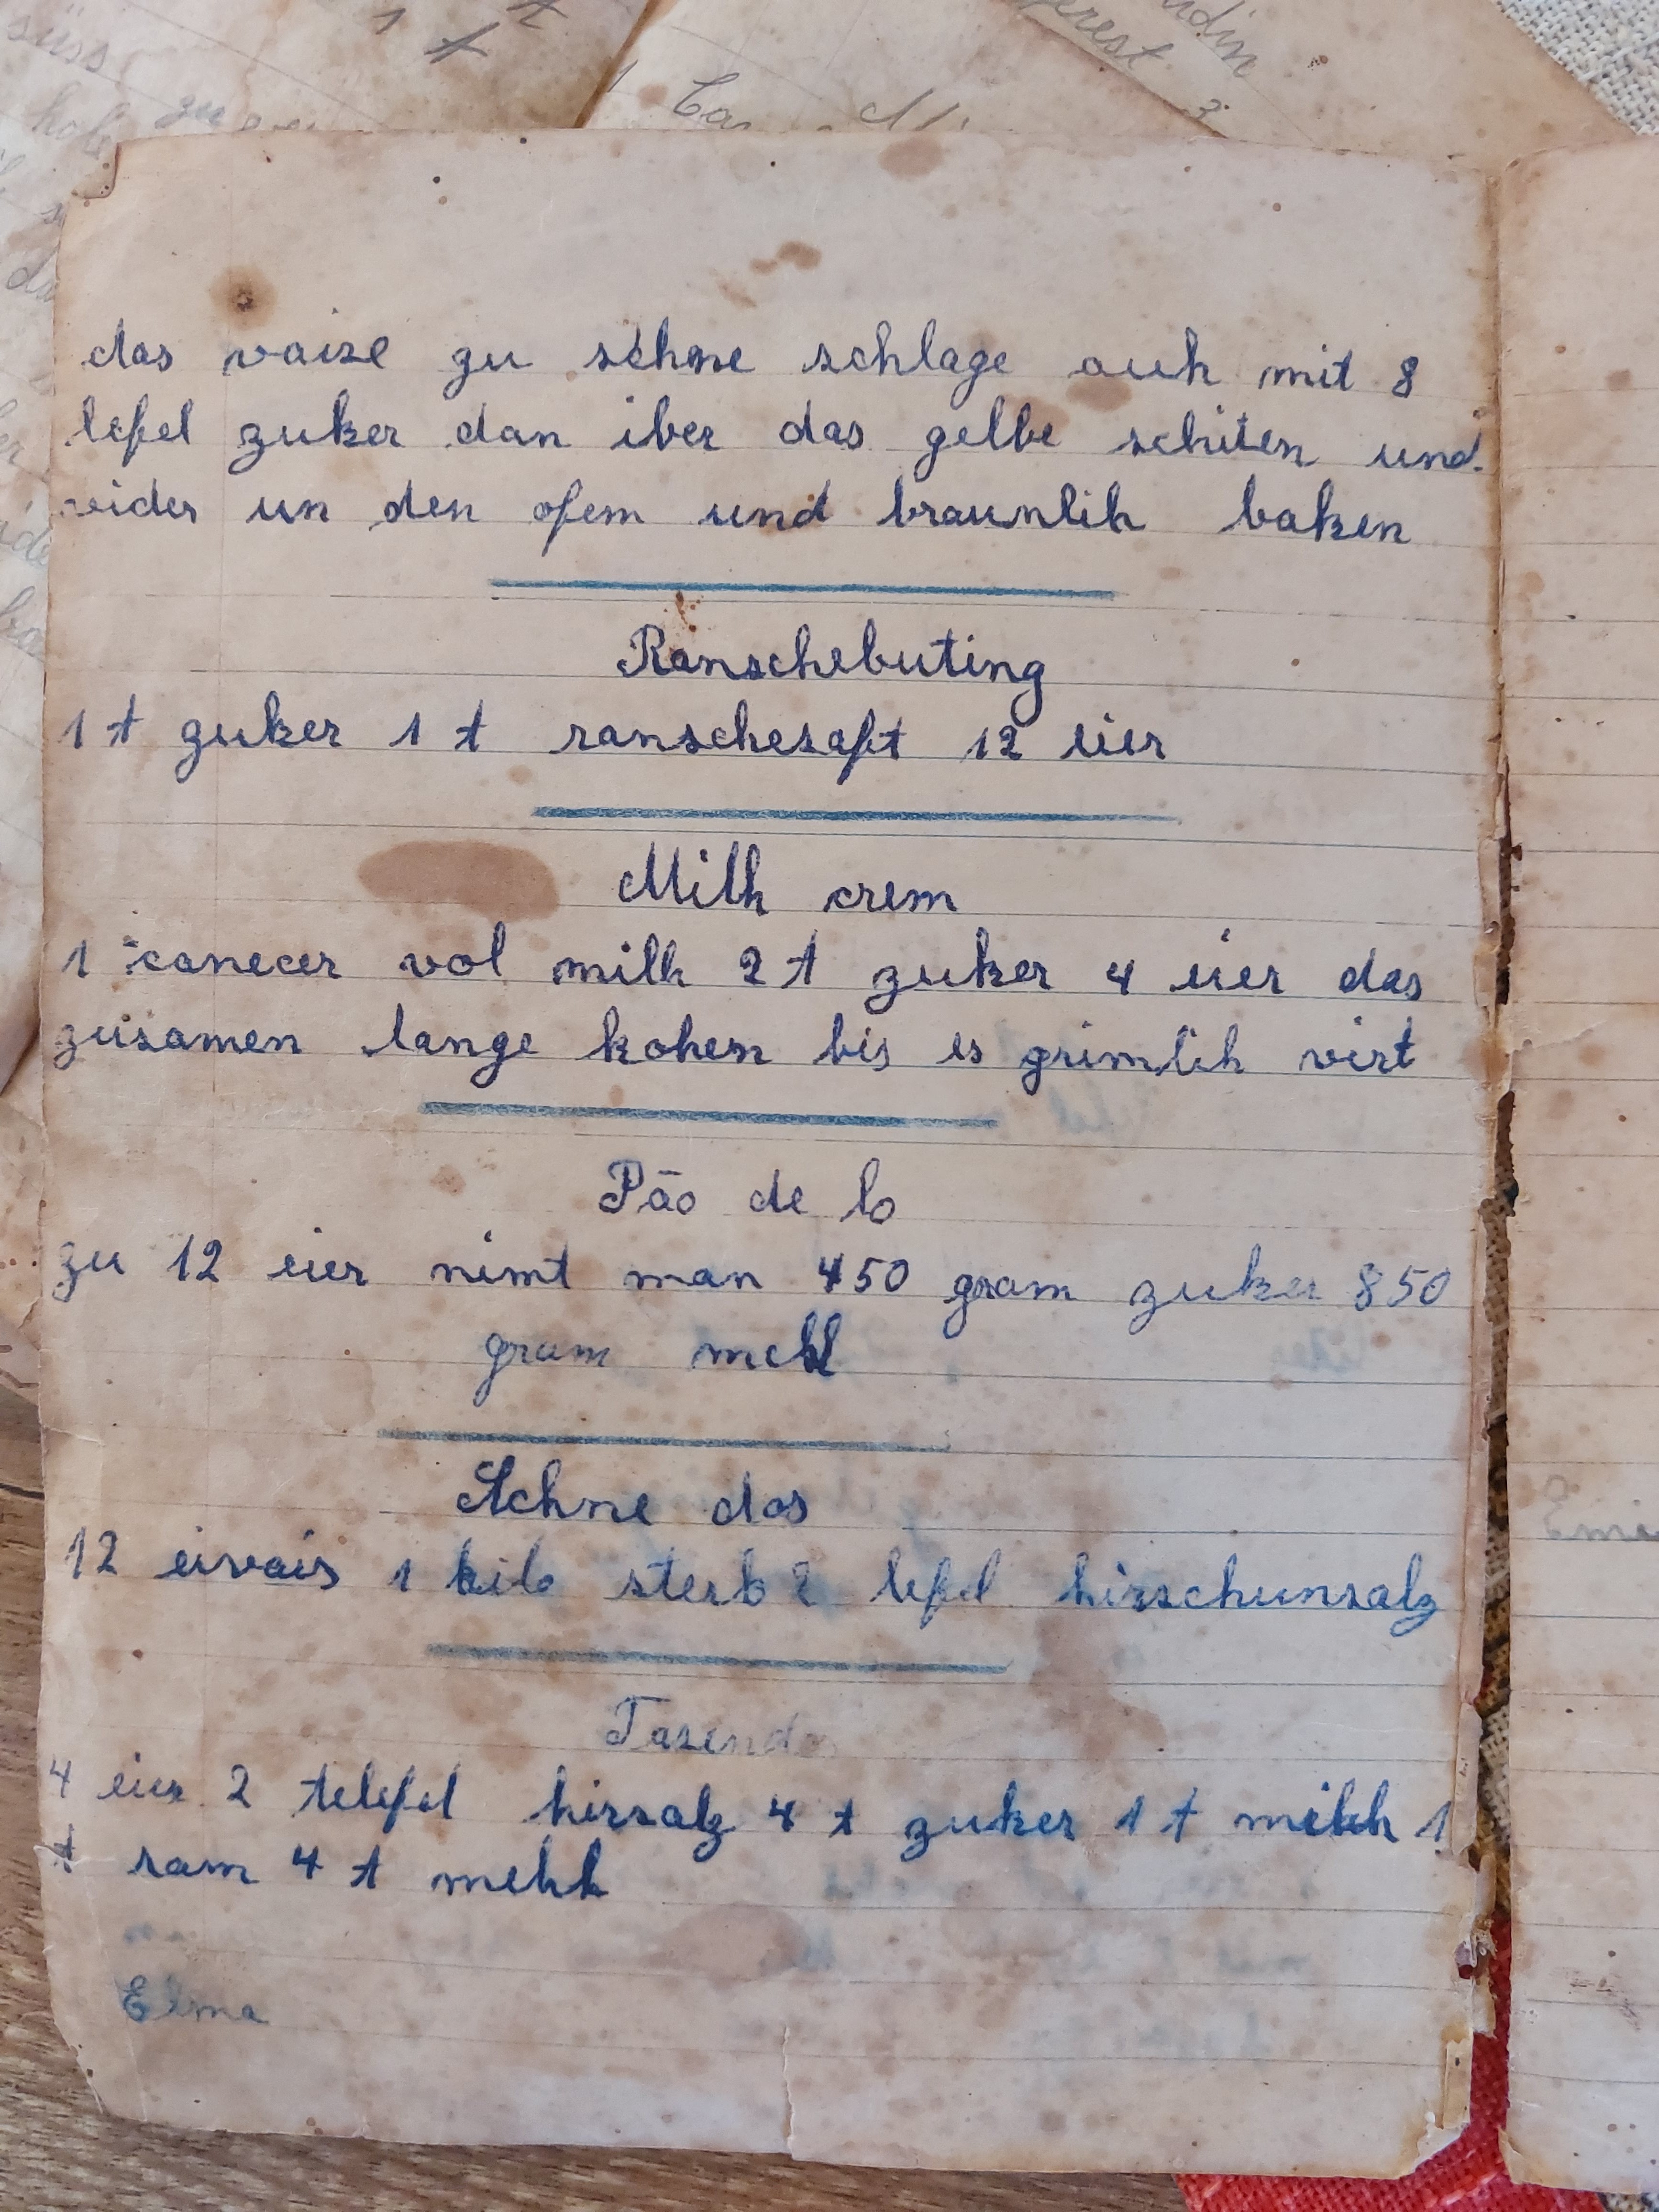 das vaize zu schne schlage auh mit 8
lefel zuker dan iber das gelbe schiten und
vider un den ofem und braunlih baken
Ranschebuting
1 t zuker 1 t ranschesaft 12 eier
Milh crem
1 canecer vol milh 2 t zuker 4 eier das
zusamen lange kohen bis es grimlih virt
Pão de lo
zu 12 eier nimt man 450 gram zuker 850
gram mehl
Schne das
12 eivais 1 kilo sterk 2 lefel hirschunsalz
4 eier 2 telefel hirsalz 4 t zuker 1 t milh 1
t ram 4 t mehl
Elma